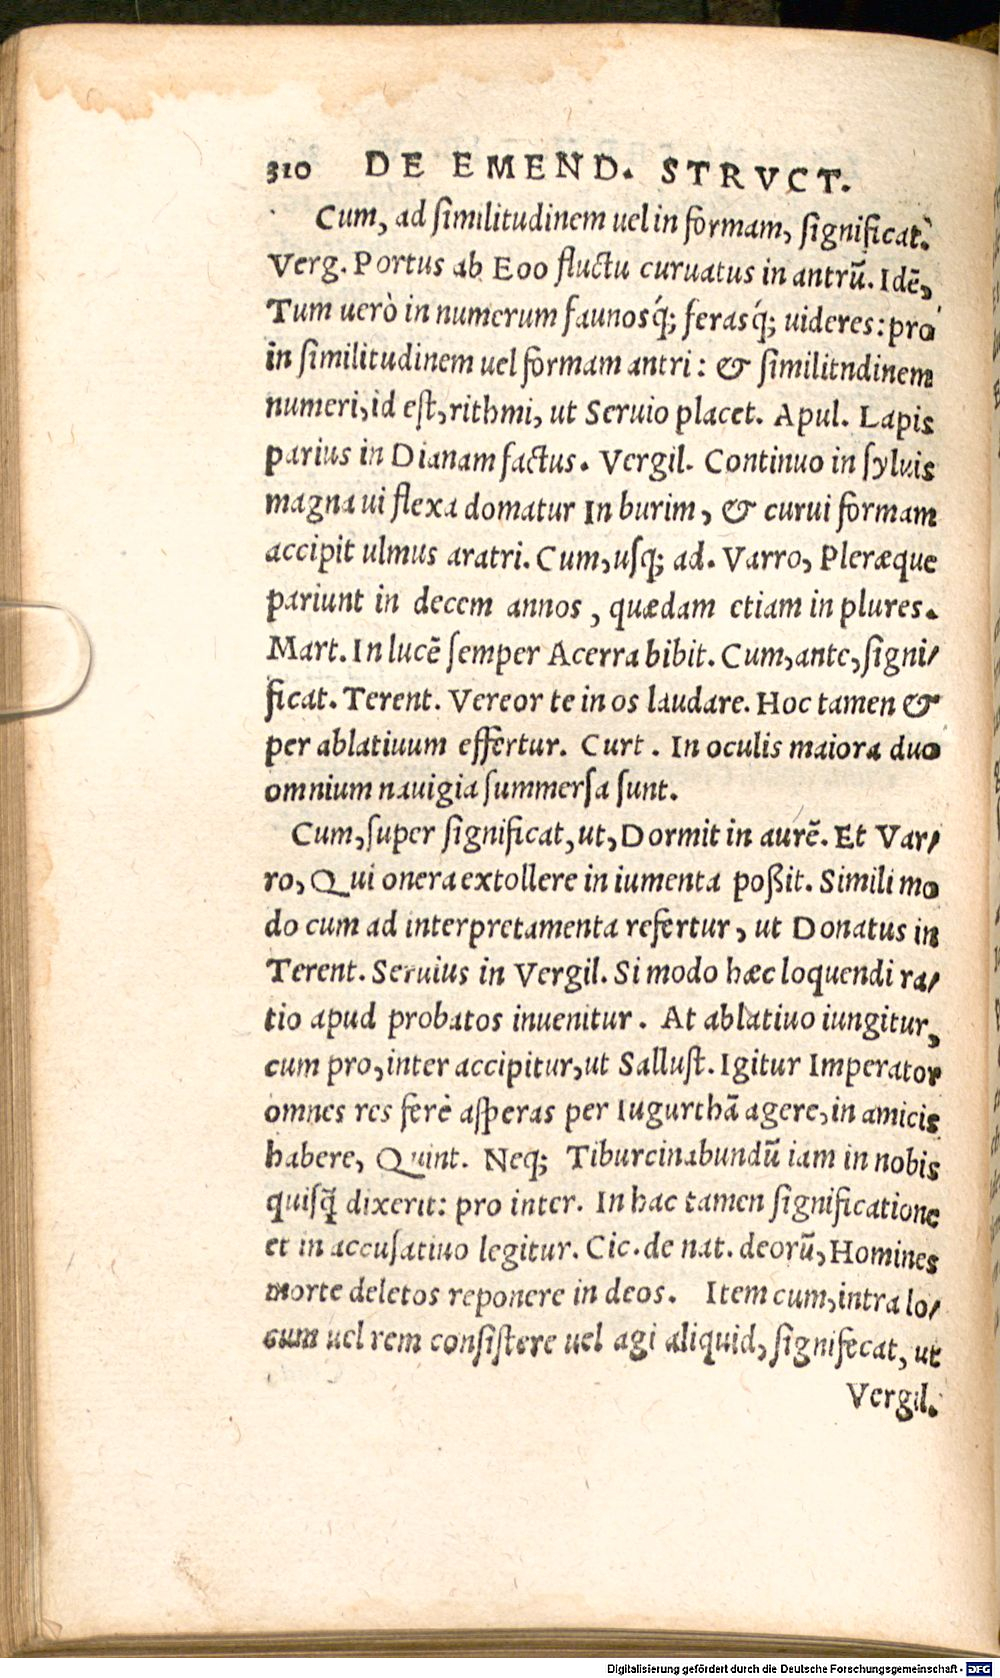 310 DE EMEND. STRVCT.
Cum, ad similitudinem uel in formam, significat.
Verg. Portus ab Eoo fluctu curuatus in antrũ. Idẽ,
Tum uerò in numerum faunosq́; ferasq́; uideres: pro
in similitudinem uel formam antri: & similitndinem
numeri, id est, rithmi, ut Seruio placet. Apul. Lapis
parius in Dianam factus. Vergil. Continuo in syluis
magna ui flexa domatur In burim, & curui formam
accipit ulmus aratri. Cum, usq; ad. Varro, Pleræque
pariunt in decem annos, quædam etiam in plures.
Mart. In lucẽ semper Acerra bibit. Cum, ante, signi/
ficat. Terent. Vereor te in os laudare. Hoc tamen &
per ablatiuum effertur. Curt. In oculis maiora duo
omnium nauigia summersa sunt.
Cum, super significat, ut, Dormit in aurẽ. Et Var/
ro, Qui onera extollere in iumenta poßit. Simili mo
do cum ad interpretamenta refertur, ut Donatus in
Terent. Seruius in Vergil. Si modo hæc loquendi ra/
tio apud probatos inuenitur. At ablatiuo iungitur,
cum pro, inter accipitur, ut Sallust. Igitur Imperator
omnes res ferè asperas per Iugurthã agere, in amicis
habere, Quint. Neq; Tiburcinabundũ iam in nobis
quisq̃ dixerit: pro inter. In hac tamen significatione
et in accusatiuo legitur. Cic. de nat. deorũ, Homines
morte deletos reponere in deos. Item cum, intra lo/
cum uel rem consistere uel agi aliquid, signifecat, ut
Vergil.
Digitalisierung gefördert durch die Deutsche Forschungsgemeinschaft - DFG